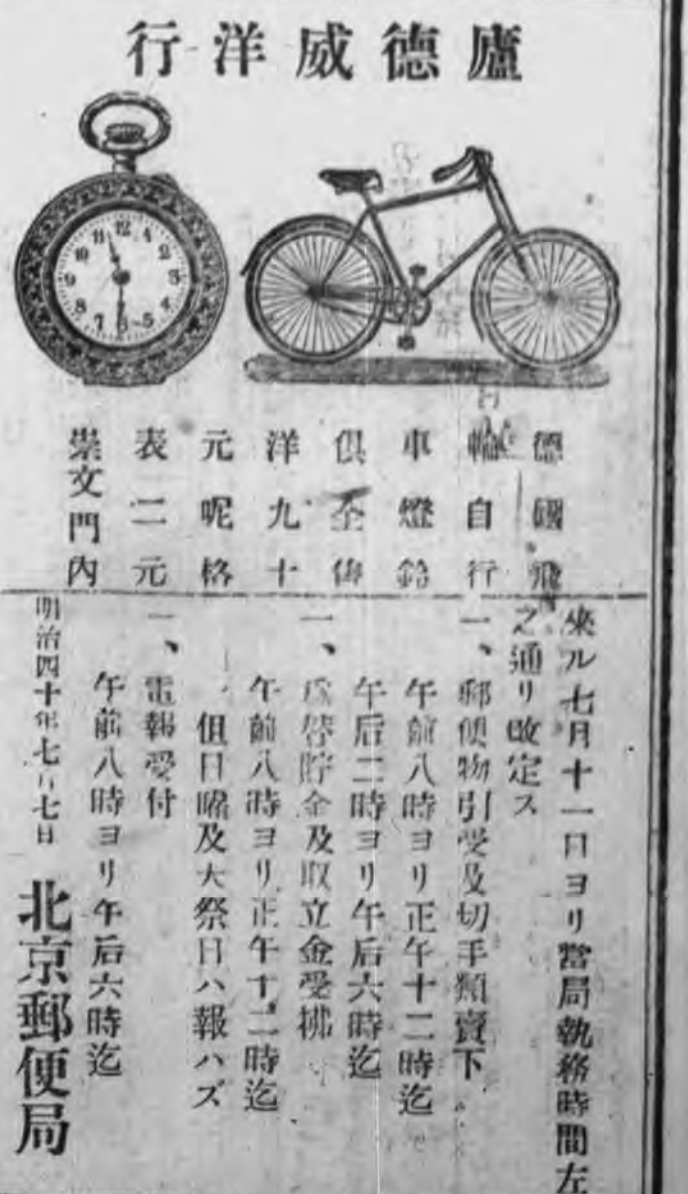 廬德威洋行
德國飛
輪自行
車燈鈴
俱全
洋九十
元呢格
表二元
崇文門內
來ル七月十一日ヨリ當局執務時間左
之通リ改定ス
一、郵便物引受及切手類賣下
午前八時ヨリ正午十二時迄
午后二時ヨリ午后六時迄
一、爲替貯金及取立金受拂
午前八時ヨリ正午十二時迄
但日曜及大祭日ハ報ハズ
一、電報受付
午前八時ヨリ午后六時迄
明治四十年七月七日
北京郵便局